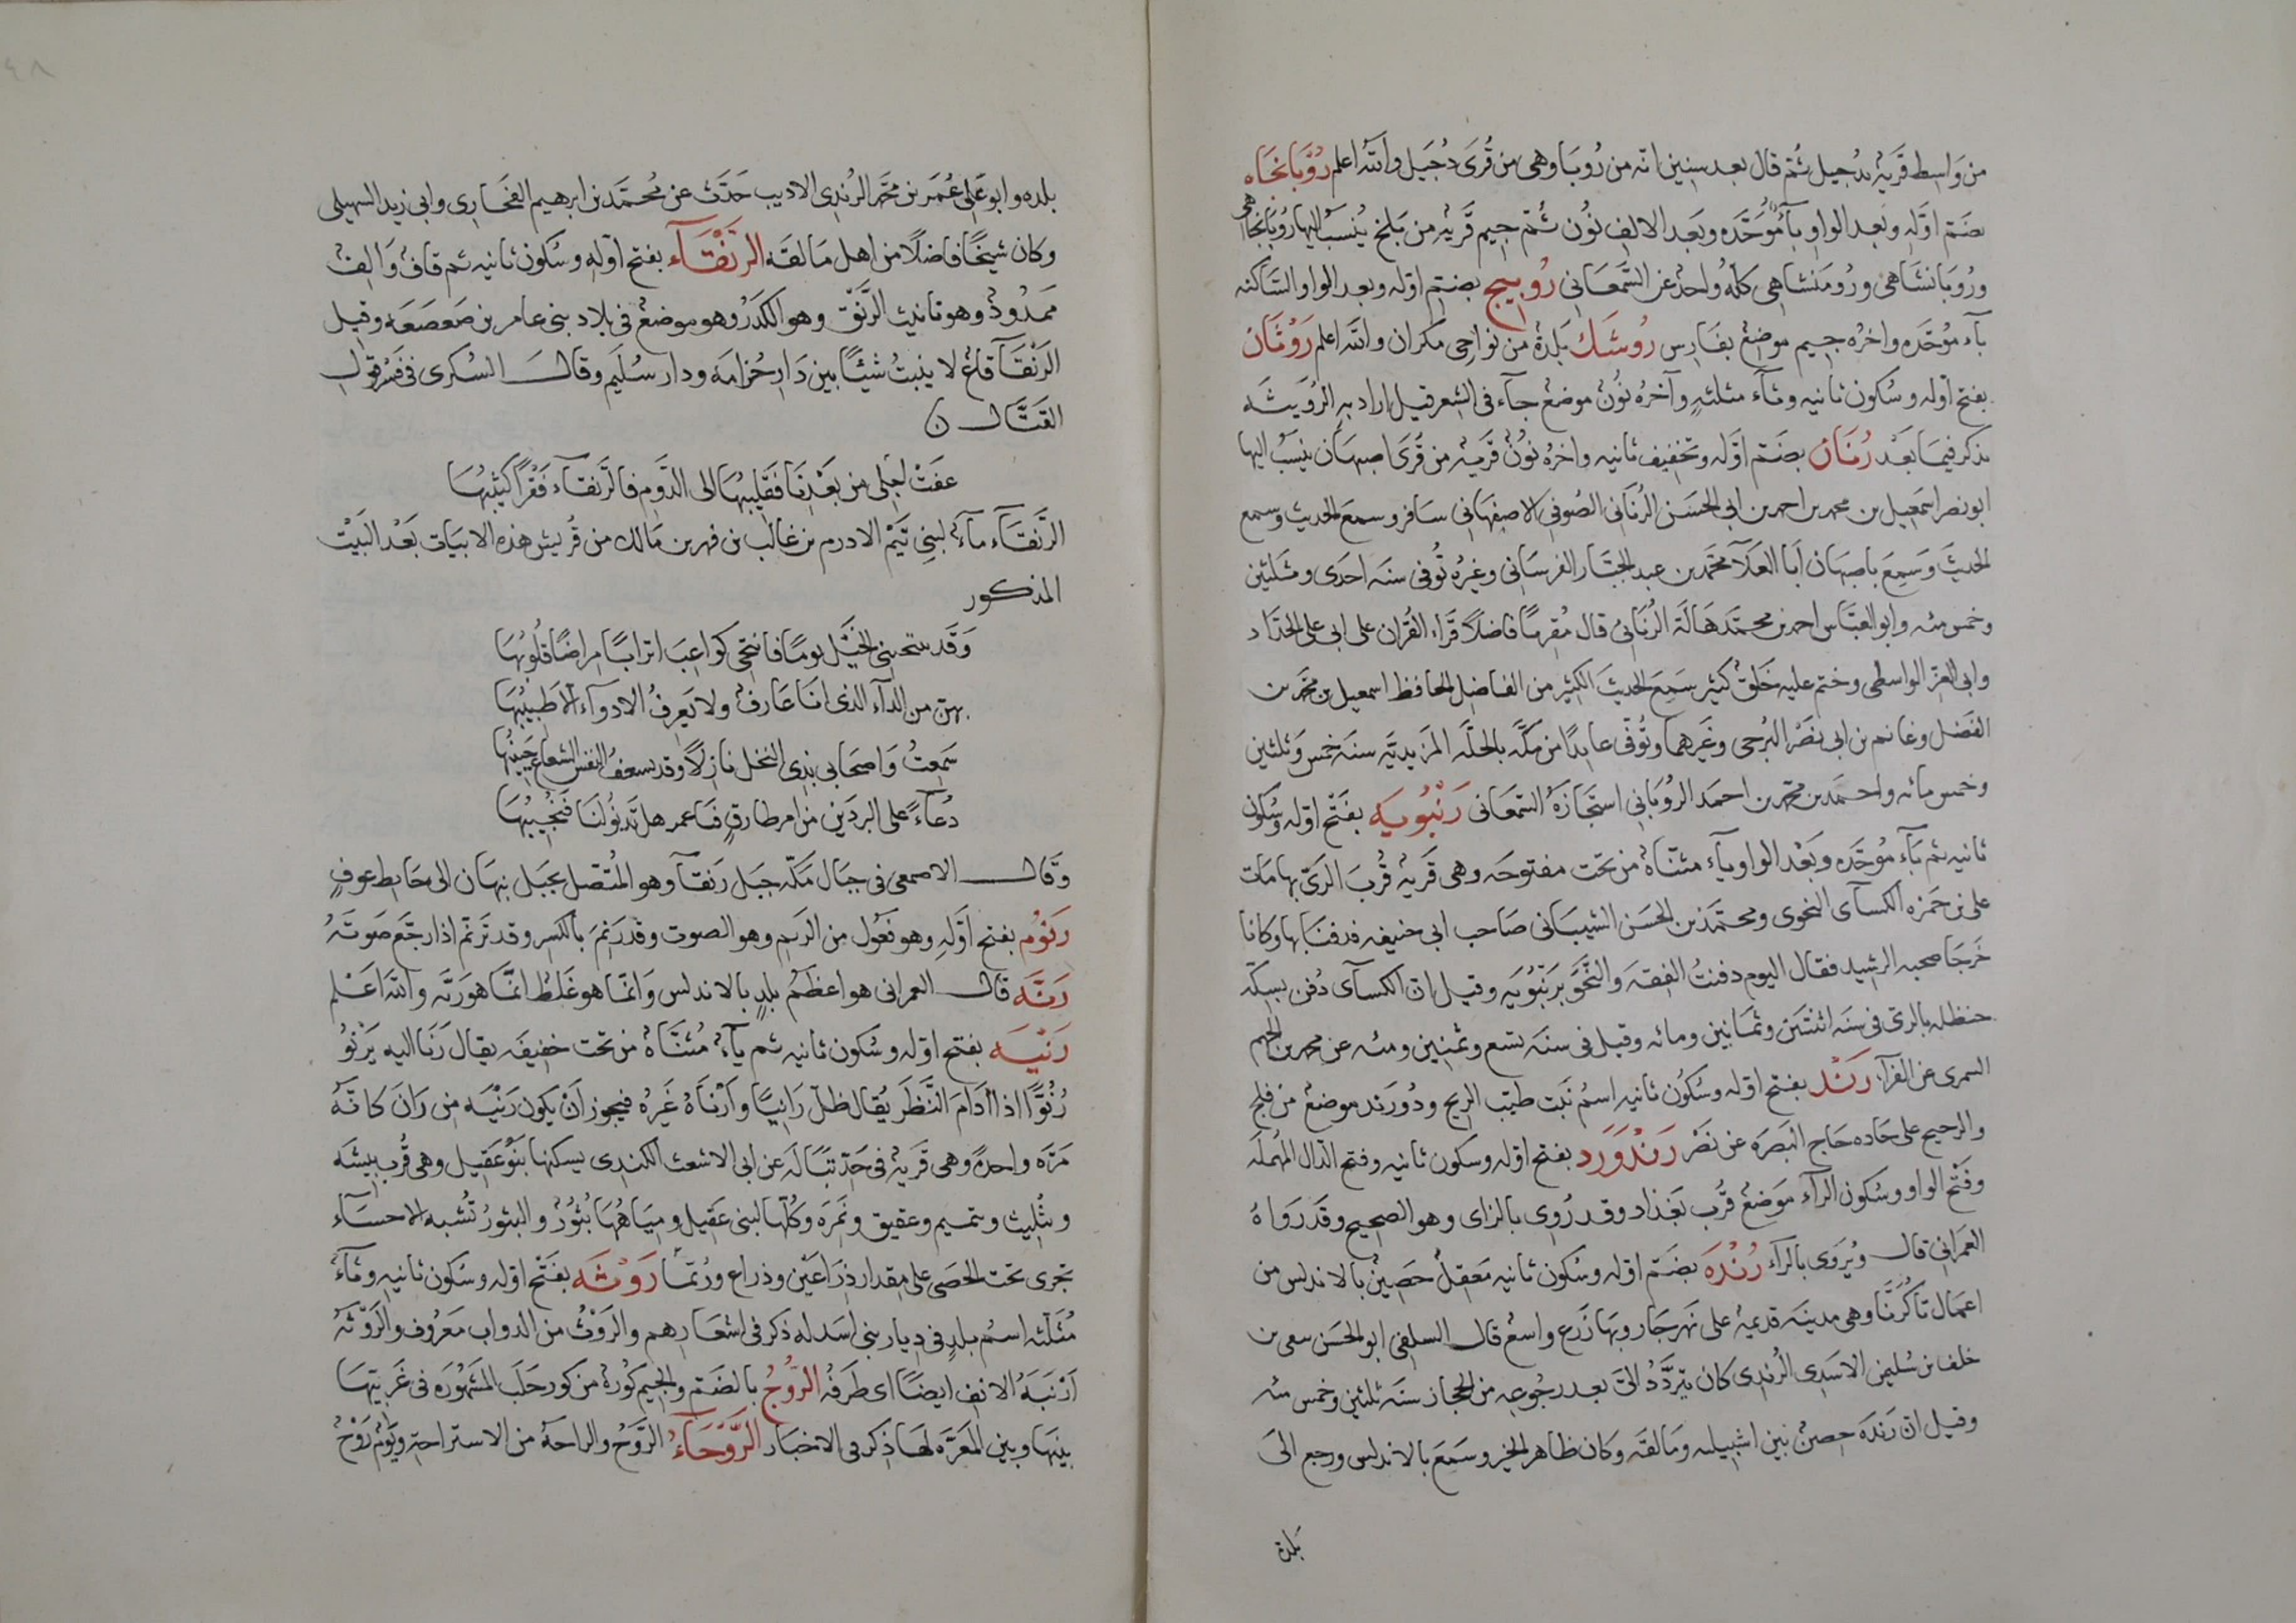 من واسط قرية بدجيل ثم قال بعد سنين انه من رُوبَا وهى من قُرَى دُجَيل والله اعلم رُوبَانجَاه
بضَم اوّله وبعد الواو بآء مُوَحَّده وبَعد الالف نُون ثم جيم قَريه من بَلخ يُنسَبُ اليها رُوبَانجَاهى
ورُوبَانشَاهى ورُومَنشاهى كلّه واحد عن السَّمعَانى رُوبيج بضم اوّله وبعد الواو السَّاكنه
بآء موُحّده واخره جيم موضع بفَارِس رُوشَك بَلدة من نواحِى مكران والله اعلم رَوْثَان
بفتح اوّله وسُكون ثانيه وثآء مثلثهٍ وآخرهُ نُونٌ موضعٌ جآء فى الشعر قيل اراد به الرُوَيثَه
يذكر فيمَا بَعْد رُنَان بضَم اوّله وتخفيف ثانيه واخرهُ نُونٌ قَريَه من قُرَى اصبهَان ينسَبُ اليها
ابو نصر اسمَعيل بن محمد بن احمد بن ابى الحسَن الرُنَانى الصُوفى الاصبهَانى سَافر وسمعَ الحديث وسمع
الحديثَ وَسَمِعَ باصبهَان اَبا العَلآ محمَّد بن عبد الجبَّار الفرسَانى وغيرُه تُوفى سنَه احدَى وثَلثين
وخمس مئه وابو العبَّاس احمد بن محمَّد هَالَة الرُنَانى قال مُقرِئًا فاضلاً قَراء القُران على ابى على الحدَّاد
وابى العزّ الواسطى وختم عليه خَلقٌ كثير سَمِعَ الحديثَ الكثير من الفاضل الحافظ اسمعيل بن محمَّد بن
الفَضل وغانم بن ابى نصْر البُرجى وغَيرهما وتُوفّى عايدًا من مكَّه بالحلَّه المَزيديَّه سنَه خمس وثلثين
وخمس مائه واحمَد بن محمّد بن احمَد الرُوبَانى استَجازَهُ السَّمعَانى رَنْبُويه بفَتْح اوّله وسُكون
ثانيه ثم بآء مُوحَّده وبَعْد الواو يآء مثنّاة من تحَت مفتوحَه وهى قَريه قُربَ الرىّ بها مَات
على بن حَمزه الكسآى النحَوى ومحَمَّد بن الحسَن الشَيبَانى صَاحب ابى حَنيفه فدفنَا بها وكانا
خَرجَا صحبه الرشيد فقال اليوم دفنتُ الفِقهَ والنَّحوَ برَنبُويَه وقيل ان الكسآى دُفن بسكّه
حَنظله بالرىّ فى سنَه اثنتَين وثمَانين ومائه وقيل فى سنَه تسَع وثمنين ومئه عن محمد بن الجهم
السمرى عن الفرآء رَنْد بفتح اوّله وسُكوُن ثانيه اسمُ نَبت طيّب الريح وذُو رَند موضعٌ من فلج
والرحيح على جَاده حَاج البَصرَه عن نصْر رَنْدَوَرد بفتح اوّله وسكون ثانيه وفتح الدّال المُهملَه
وفَتْح الواو وسُكون الرآء موَضعٌ قُرب بَغذاد وقد رُوى بالزاى وهو الصحيح وقَد رَوَاهُ
العمَرانى قال ويُروَى بالرآء رُنْدَه بضَم اوّله وسكُون ثانيه مَعقِلٌ حَصِينٌ بالاندلس من
اعمَال تَاكُرُنَّا وهى مدينَه قديمهٌ على نهَر جَار وبهَا زَرع واسعٌ قال السلفى ابو الحسَن سعى بن
خلف بن سُليمن الاسَدى الرُندى كان يتَردَّدُ الىّ بعد رجُوعه من الحجاز سنَه ثلثين وخمس مئه
وقيل ان رَندَه حِصنٌ بين اشبيليه ومَالقَه وكان ظاهر الخير وسَمَعَ بالاندلس ورجع الىَ
بلدة
بلده وابو عَلى عُمَر بن محمّد الرُندى الاديب حَدَّث عن مُحمَّد بن ابرهيم الفخَّارى وابى زيد السُهيلى
وكان شيخًا فاضلًا من اهل مَالقَه الرَنْقَآء بفتح اوّله وسُكون ثانيه ثم قاف وَالِف
ممدُودٌ وهو تانيث الرَّنْقِ وهو الكَدَرُ وهو موضعٌ فى بلاد بنى عامر بن صَعصَعه وقيل
الرَنْقَآ قاعٌ لا ينبتُ شيئًا بين دَار خُزامه ودار سُلَيم وقال السكرى فى فسر قول
القتَّال ن
عفَتْ اجلى من بَعْدِنَا فقَليبهَا الى الدَّوم فالرَنقآء قَفْرًا كثيبُهَا
الرَّنقَآء مآءٌ لبنِى تَيْم الادرم بن غالب بن فهر بن مَالك من قُريش هذه الابيَات بَعْد البَيْت
المذكور
وَقَد ينتحينى الخَيْل يومًا فانتحى كواعِبَ اترابًا مِراضًا قلُوبُهَا
بهن من الدآء الذى انَا عَارفٌ ولا يَعرفُ الادوآء الّا طَبيبُهَا
سَمِعتُ وَاصحَابى بذِى النخل نازلًا وقد يسعفُ النفس الشعاع حَبيبُهَا
دُعآءً على البردَين من ام طارقٍ فيَاعمر هل تَدنُو لنَا فنَجُيبُهَا
وقَال الاصمعى فى جبَال مكّه جبَل رَنقآ وهو المُتّصل بجَبل نبهَان الى حَايط عوفٍ
رَنُوُم بفتح اوَّلِه وهو فعَول من الرنم وهو الصوت وقد رَنِمَ بالكسر وقد تَرنّم اذا رجَّع صَوتَهُ
رَنَّه قال العمرانى هو اعظمُ بلدٍ بالاندلس وَانّما هو غَلطٌ انمَّا هو ريَّه والله اعْلم
رَنْيَه بفتح اوّله وسُكون ثانيه ثم يآءٌ مُثنَّاة من تحَت خفيفَه يقال رَنَا اليه يَرنُوُ
رُنُوًّا اذا ادَامَ النَّظَر يُقال ظلّ رَانيًا وأرنَاهُ غَيرُه فيجوز اَنْ يكون رَنْيَه من رَانَ كانّهُ
مَرّه واحدةً وهى قَريةٌ فى حَدّ تبَالَه عن ابى الاشعث الكندى يسكنها بنَوُ عُقيل وهى قُرب بِيشَه
وتثليث وتميم وعقيق وثَمَره وكُلّها لبنى عقيل وميَاهُهَا بُثُوُرٌ والبثورُ تُشبه الاحسَآء
تجرى تحَت الحصَى على مقدار ذِرَاعَين وذراع ورُبّما رَوْثَه بفَتْح اوّله وسُكون ثانيه وثآءٌ
مُثلّثه اسم بلدٍ فى دِيار بنى اسَد له ذكر فى اشعَارِهم والرَوْثُ من الدواب مَعَروُف والرَوثهُ
اَرْنَبَهُ الانف ايضًا اى طَرفهُ الرُّوجُ بالضم والجيم كوُرةٌ من كور حَلَب المَشهُورَه فى غَربيّهَا
بينَهَا وبين المعَرَّه لهَا ذِكر فى الاخبَار الرَّوحَآءُ الرَّوُحُ والراحهُ من الاستراحة ويَوْمٌ رَوْحٌ